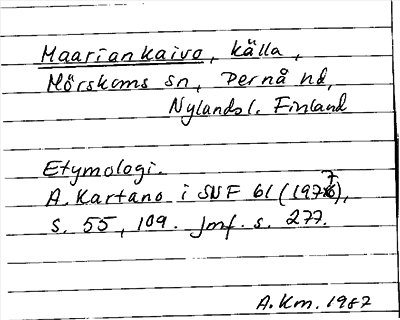 Maariankaivo, källa,
Mörskoms sn, Pernå hd,
Nylandsl. Finland
Etymologi.
A. Kartano i SNF 61 (1977),
s. 55, 109. Jmf. s. 277.
A.Km. 1987